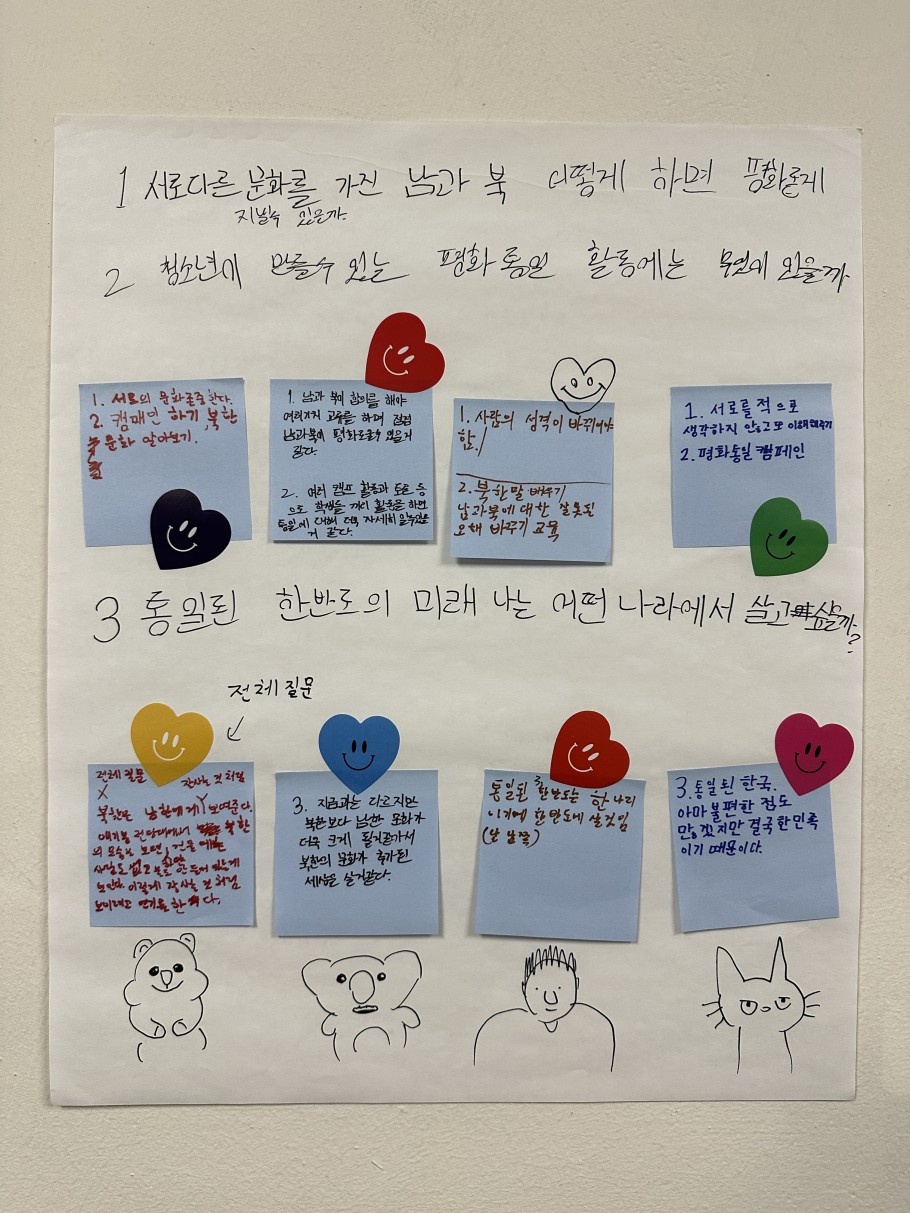 1 서로다른 문화를 가진 남과 북 어떻게 하면 평화롭게
지낼수 있을까
2 청소년이 만들수 있는 평화통일 활동에는 무엇이 있을까
1. 서로의 문화존중한다.
2. 캠패인 하기, 북한
문화 알아보기.
1. 남과 북이 합의를 해야
여러가지 교류를 하며 점점
남과북이 평화로울수 있을거
같다
2. 여러 캠프 활동과 토론 등
으로 학생들 끼리 활동을 하면
통일에 대해 더욱 자세히 알수있을
거 같다.
1. 사람의 성격이 바뀌어야
함.
2. 북한말 배우기
남과북에 대한 잘못된
오해 바꾸기 교육
1. 서로를 적으로
생각하지 안고 또 이해해주기
2. 평화통일 캠페인
3 통일된 한반도의 미래 나는 어떤 나라에서 살고 싶을까?
전체 질문
전체 질문
잘사는 것 처럼
북한은 남한에게 보여준다.
전망대에서 북한
의 모습을 보면, 건물에
사람도 없고 불도
이렇게 잘사는 것 처럼
보이려고 연기를 한다.
3. 지금과는 다르지만
북한보다 남한 문화가
더욱 크게 될것같아서
북한의 문화가 추가된
세상을 살거같다.
3. 통일된 한반도는 한 나라
이기에 한반도에 살것임
3. 통일된 한국.
아마 불편한 점도
많겠지만 결국 한민족
이기 때문이다.